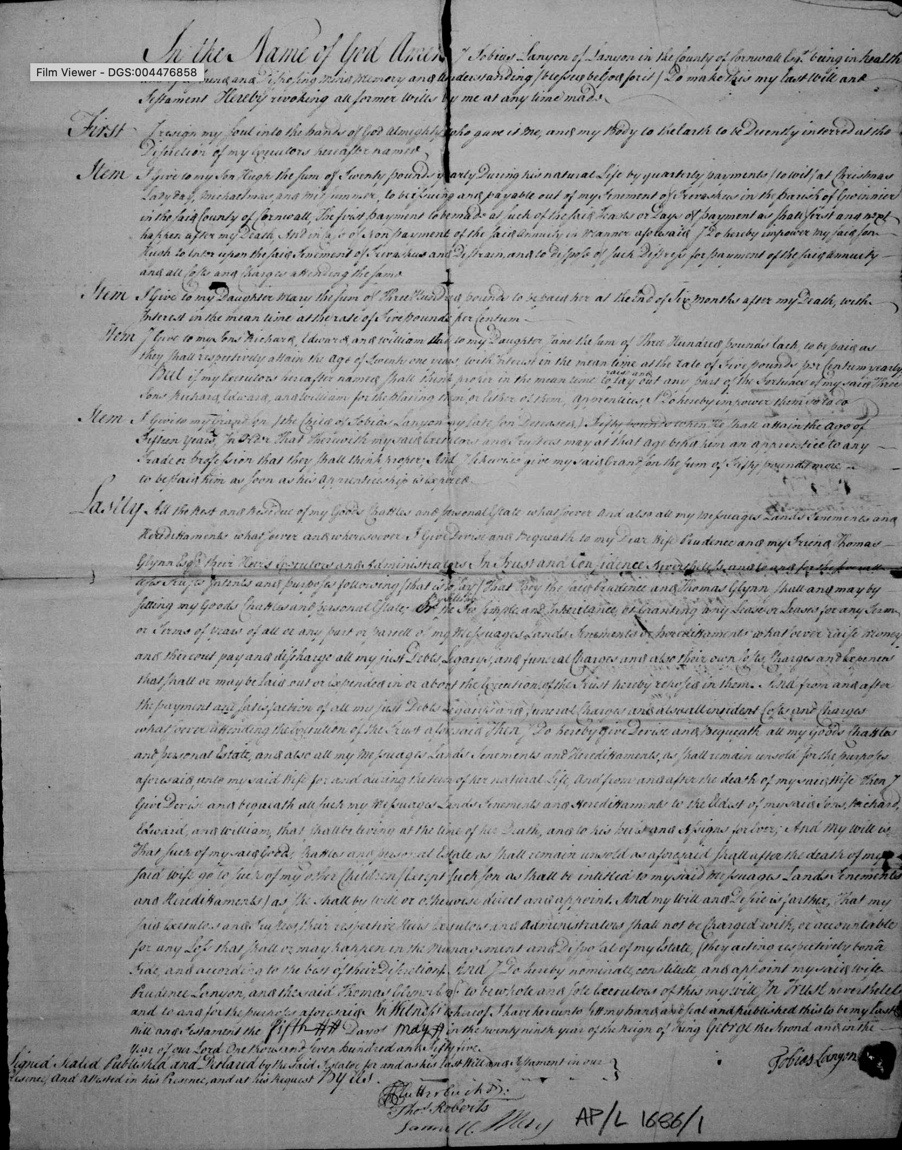 In the Name of God Amen I Tobias Lanyon of Lanyon in the County of Cornwall Esqr. being in health
Film Viewer - DGS:004476858
and of sound and disposing mind Memory and Understanding (blessed be God for it) Do make this my last Will and
Testament Hereby revoking all former Wills by me at any time made
First I resign my soul into the hands of God Almighty who gave it me, and my Body to the Earth to be Decently interred at the
Discretion of my Executors hereafter named
Item I Give to my Son Hugh the sum of Twenty pounds yearly During his natural Life by quarterly payments (to wit) at Christmas
Ladyday, Michaelmas and Midsummer, to be issuing and payable out of my Tenement of in the parish of Gwinnier
in the said County of Cornwall, The first payment to be made at such of the said Feasts or Days of payment as shall first and next
happen after my Death, And in case of Non payment of the said Annuity in Manner aforesaid I Do hereby impower my said Son
Hugh to Enter upon the said Tenement of and Distrain, and to dispose of such Distress for payment of the said annuity
and all Costs and Charges attending the same
Item I Give to my Daughter Mary the sum of Three Hundred pounds to be paid her at the End of Six Months after my Death, with
Interest in the mean time at the rate of Five pounds per Centum
Item I Give to my Sons Richard, Edward and William and to my Daughter Jane the sum of Three Hundred pounds Each to be paid as
they shall respectively attain the Age of Twenty one years, with Interest in the mean time at the rate of Five pounds per Centum yearly
But if my Executors hereafter named shall think proper in the mean time to raise and lay out any part of the Fortunes of my said Three
Sons Richard, Edward, and William for the Placing them, or Either of them, Apprentices, I Do hereby impower them so to do
Item I Give to my Grandson (the Child of Tobias Lanyon my late Son Deceased) Fifty pounds when he shall attain the Age of
Fifteen years, In Order That therewith my said Executors and Trustees may at that age bind him an apprentice to any
Trade or profession that they shall think proper; And I likewise give my said Grandson the sum of Fifty pounds more
to be paid him as soon as his Apprenticeship is Expired
Lastly All the Rest and Residue of my Goods Chattles and personal Estate whatsoever And also all my Messuages Lands Tenements and
Hereditaments whatsoever and wheresoever I Give Devise and Bequeath to my Dear Wife Prudence and my Friend Thomas
Glynn Esqr. their Heirs Executors and Administrators In Trust and Confidence Nevertheless, and to and for the
Uses Intents and purposes following (that is to say) That they the said Prudence and Thomas Glynn shall and may by
selling my Goods Chattles and personal Estate, Or by selling the Fee simple and Inheritance, or Granting any Lease or Leases for any Term
or Terms of years of all or any part or parcell of my Messuages Lands Tenements or hereditaments whatsoever raise Money
and thereout pay and discharge all my just Debts Legacys, and funeral Charges and also their own Costs, Charges and Expences
that shall or may be laid out or expended in or about the Execution of the Trust hereby reposed in them. And from and after
the payment and satisfaction of all my just Debts Legacys and funeral Charges and also all incident Costs and Charges
whatsoever attending the Execution of the Trust aforesaid Then I Do hereby Give Devise and Bequeath all my Goods Chattles
and personal Estate, and also all my Messuages Lands Tenements and Hereditaments, as shall remain unsold for the purposes
aforesaid, unto my said Wife for and during the term of her natural Life, And from and after the death of my said Wife Then I
Give Devise and bequeath all such my Messuages Lands Tenements and Hereditaments to the Eldest of my said Sons, Richard,
Edward, and William, that shall be living at the time of her Death, and to his heirs and Assigns for Ever; And My Will is
That such of my said Goods Chattles and personal Estate as shall remain unsold as aforesaid shall after the death of my
said Wife go to such of my other Children (Except such son as shall be intitled to my said Messuages Lands Tenements
and Hereditaments) as she shall by will or otherwise direct and appoint. And my Will and Desire is farther, That my
said Executors and Trustees their respective Heirs Executors and Administrators shall not be Charged with, or accountable
for any Loss that shall or may happen in the Management and Disposal of my Estate, (they acting respectively bona
Fide, and according to the best of their Discretion) And I Do hereby nominate, constitute and appoint my said wife
Prudence Lanyon, and the said Thomas Glynn to be whole and sole Executors of this my will, In Trust nevertheless
and to and for the purposes aforesaid. In Witness whereof I have hereunto set my hand and seal and published this to be my last
Will and Testament the Fifth Day of May in the twenty ninth year of the Reign of King George the Second and in the
Year of our Lord One thousand seven hundred and fifty five.
Signed Sealed Published and Declared by the said Testator for and as his last Will and Testament in our
presence, And attested in his Presence, and at his Request By us
Tobias Lanyon
Thos. Roberts
AP/L 1686/1